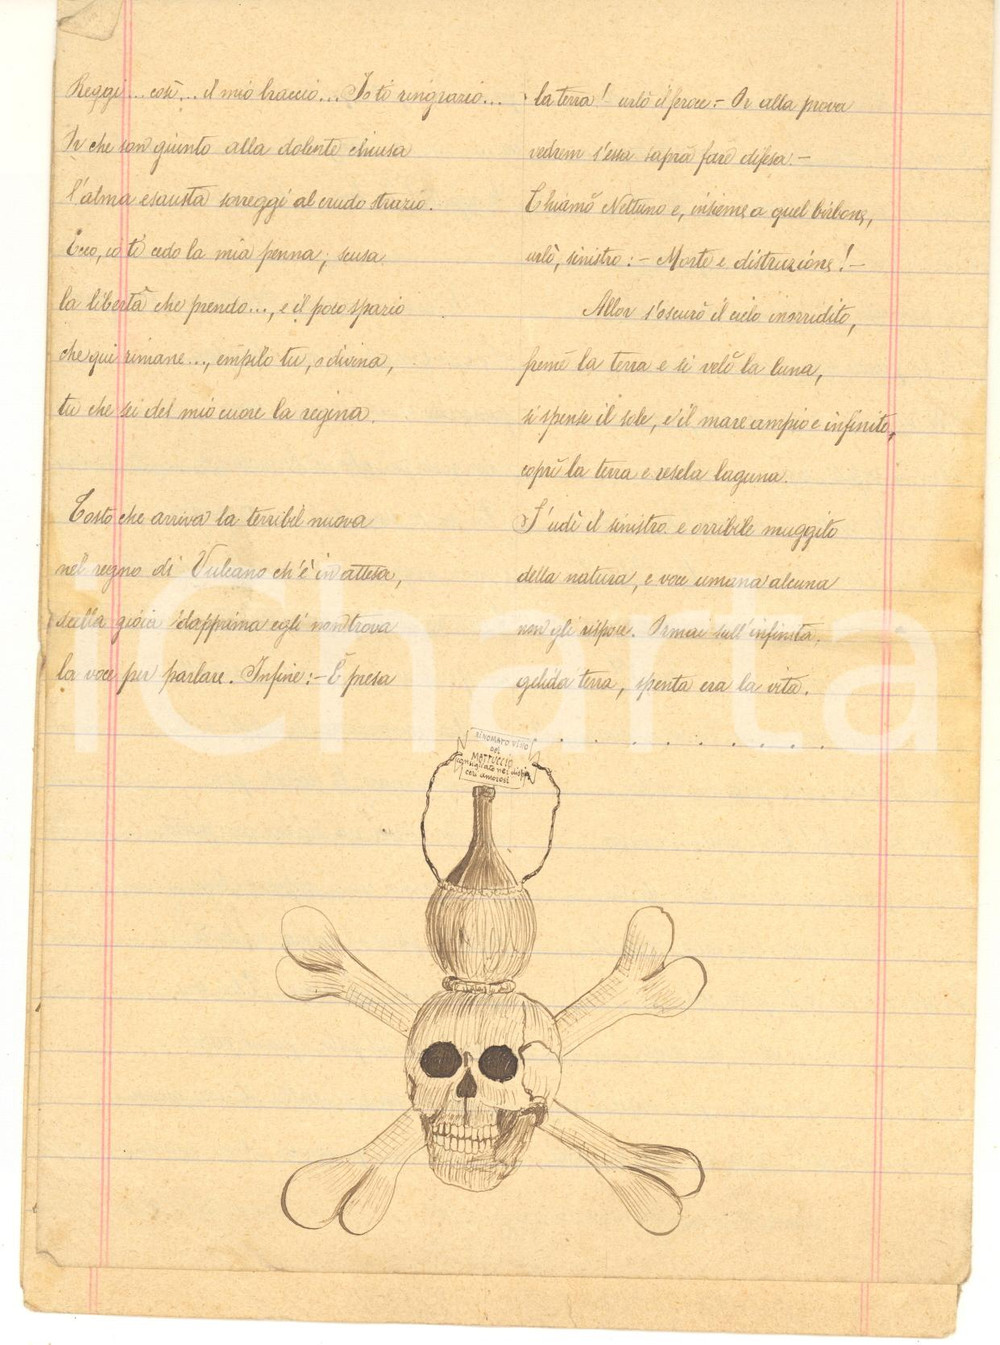 Reggi... così... il mio braccio... Io ti ringrazio...
Or che son giunto alla dolente chiusa
l'alma esausta sorreggi al crudo strazio.
Ecco, io ti cedo la mia penna; scusa
la libertà che prendo..., e il poco spazio
che qui rimane..., empilo tu, o divina,
tu che sei del mio cuore la regina.
Tosto che arriva la terribil nuova
nel regno di Vulcano ch'è in attesa,
della gioia dapprima egli non trova
la voce per parlare. Infine: - È presa
la terra! - urlò il feroce: - Or alla prova
vedrem s'essa saprà fare difesa -
Chiamò Nettuno e, insieme a quel birbone,
urlò, sinistro: - Morte e distruzione! -
Allor s'oscurò il cielo inorridito,
fremé la terra e si velò la luna,
si spense il sole, e il mare ampio e infinito,
coprì la terra e resela laguna.
S'udì il sinistro e orribile muggito
della natura, e voce umana alcuna
non gli rispose. Ormai sull'infinita,
gelida terra, spenta era la vita.
RINOMATO VINO
DEL
MATTUCCIO
consigliato nei dispia
ceri amorosi
iCharta